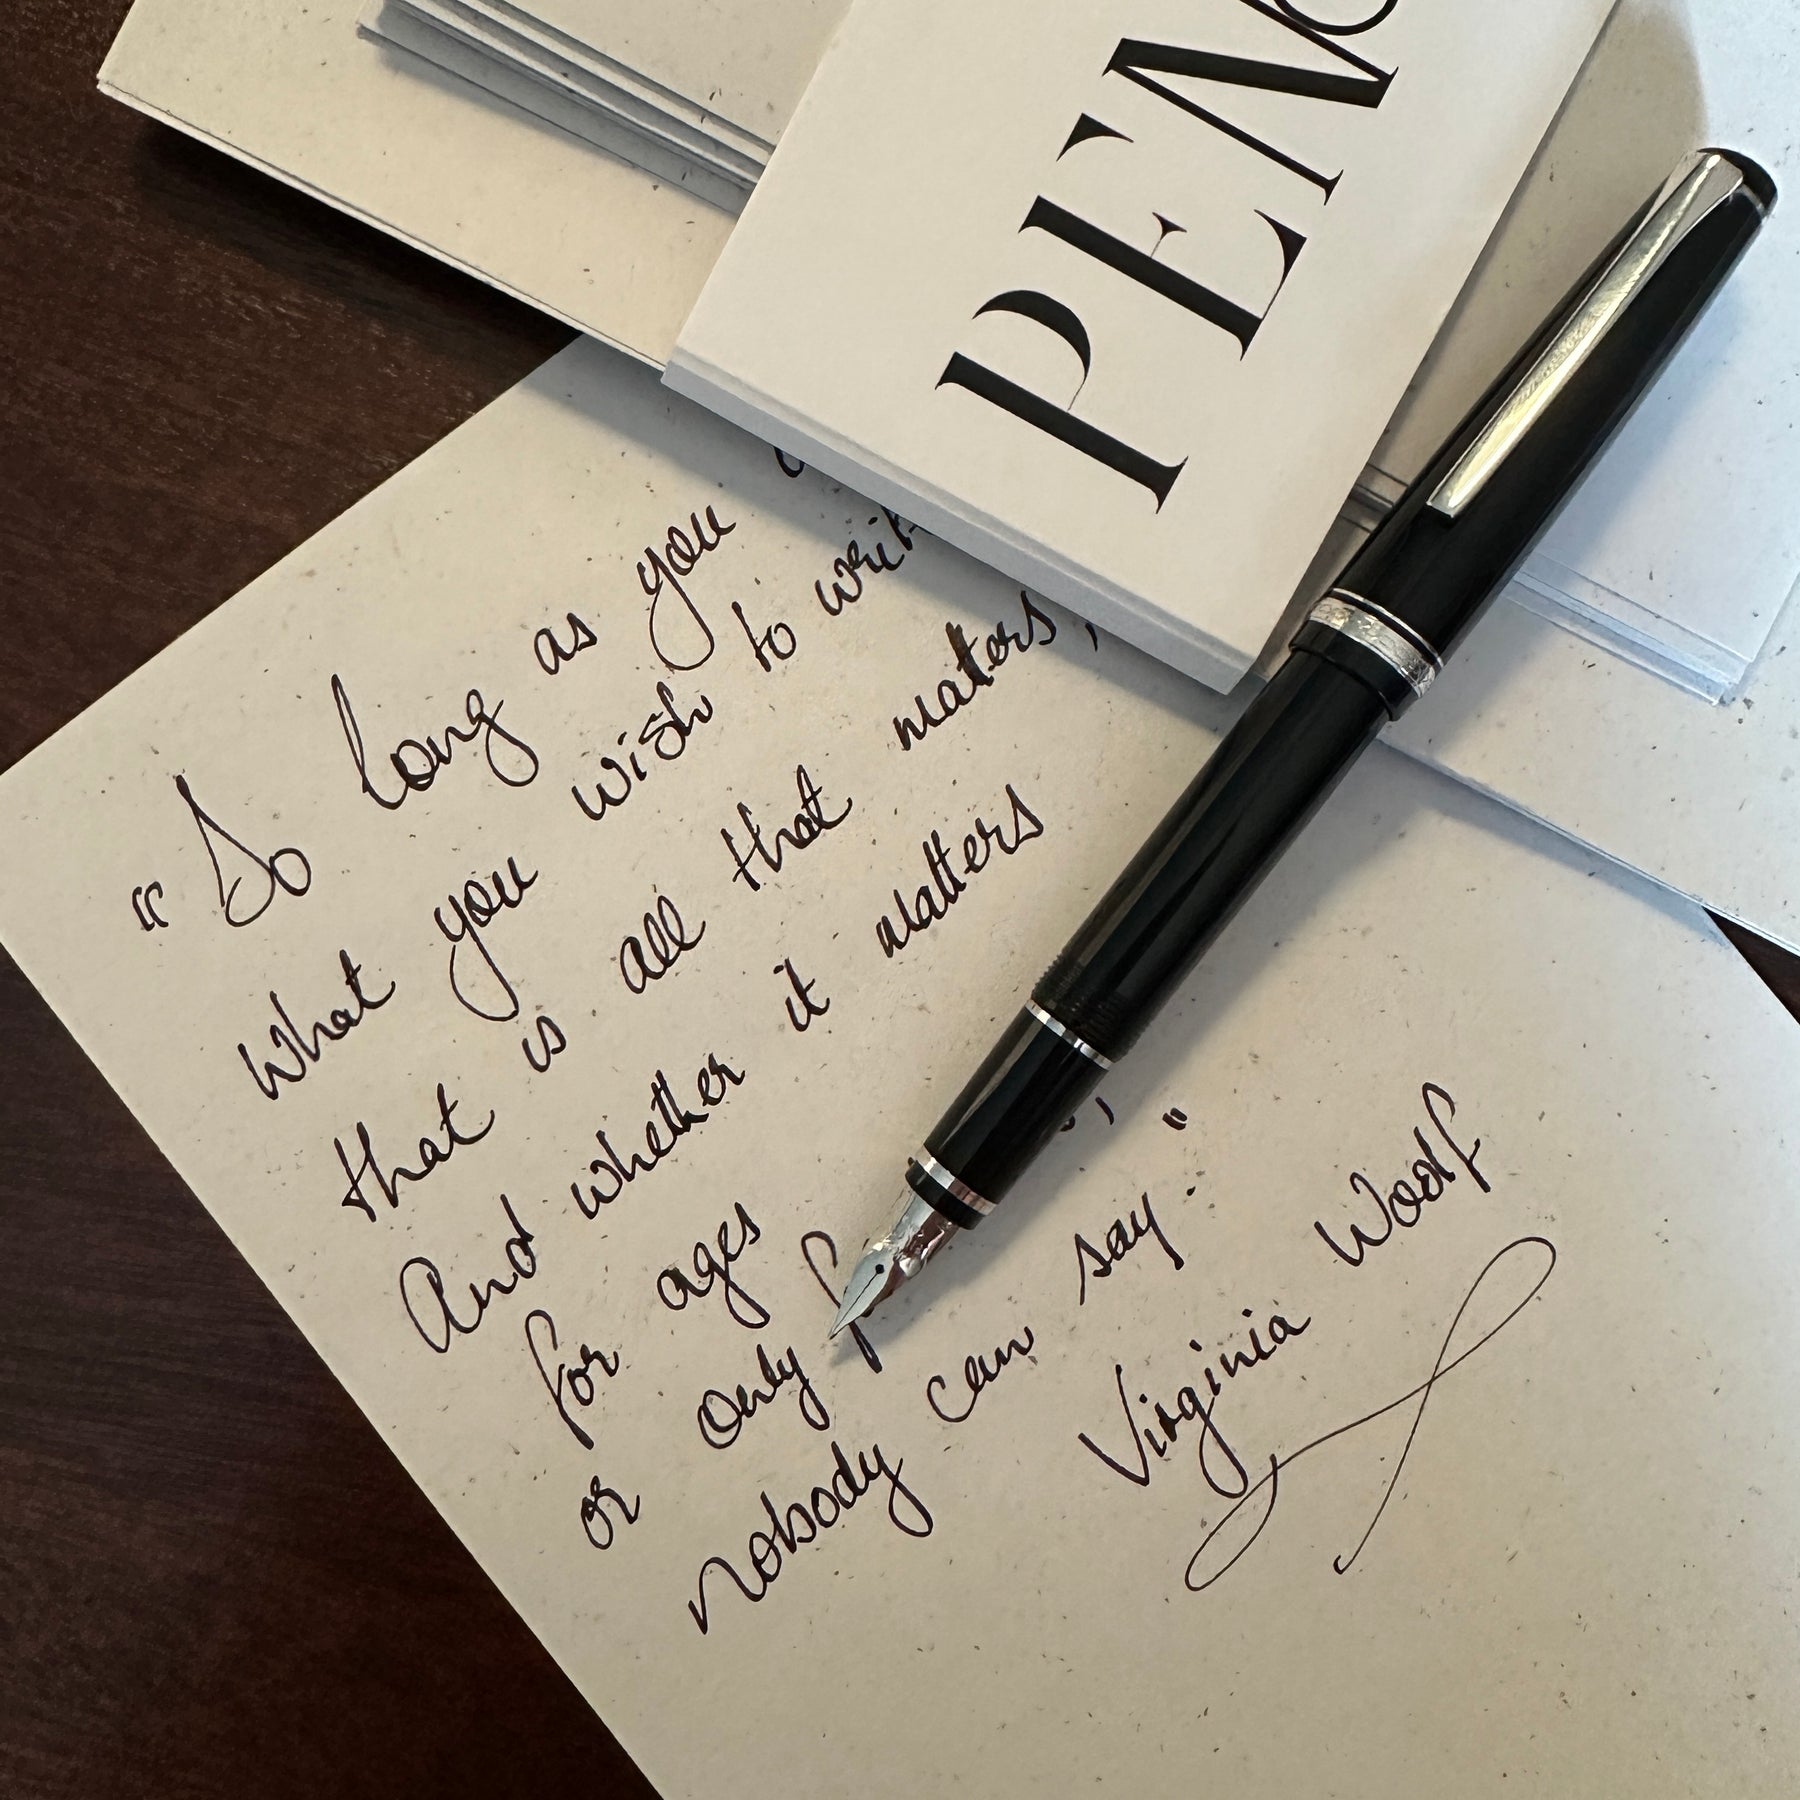 PEN
"So long as you
what you wish to
that is all that matters,
And whether it matters
for ages
or only
nobody can say."
Virginia Woolf